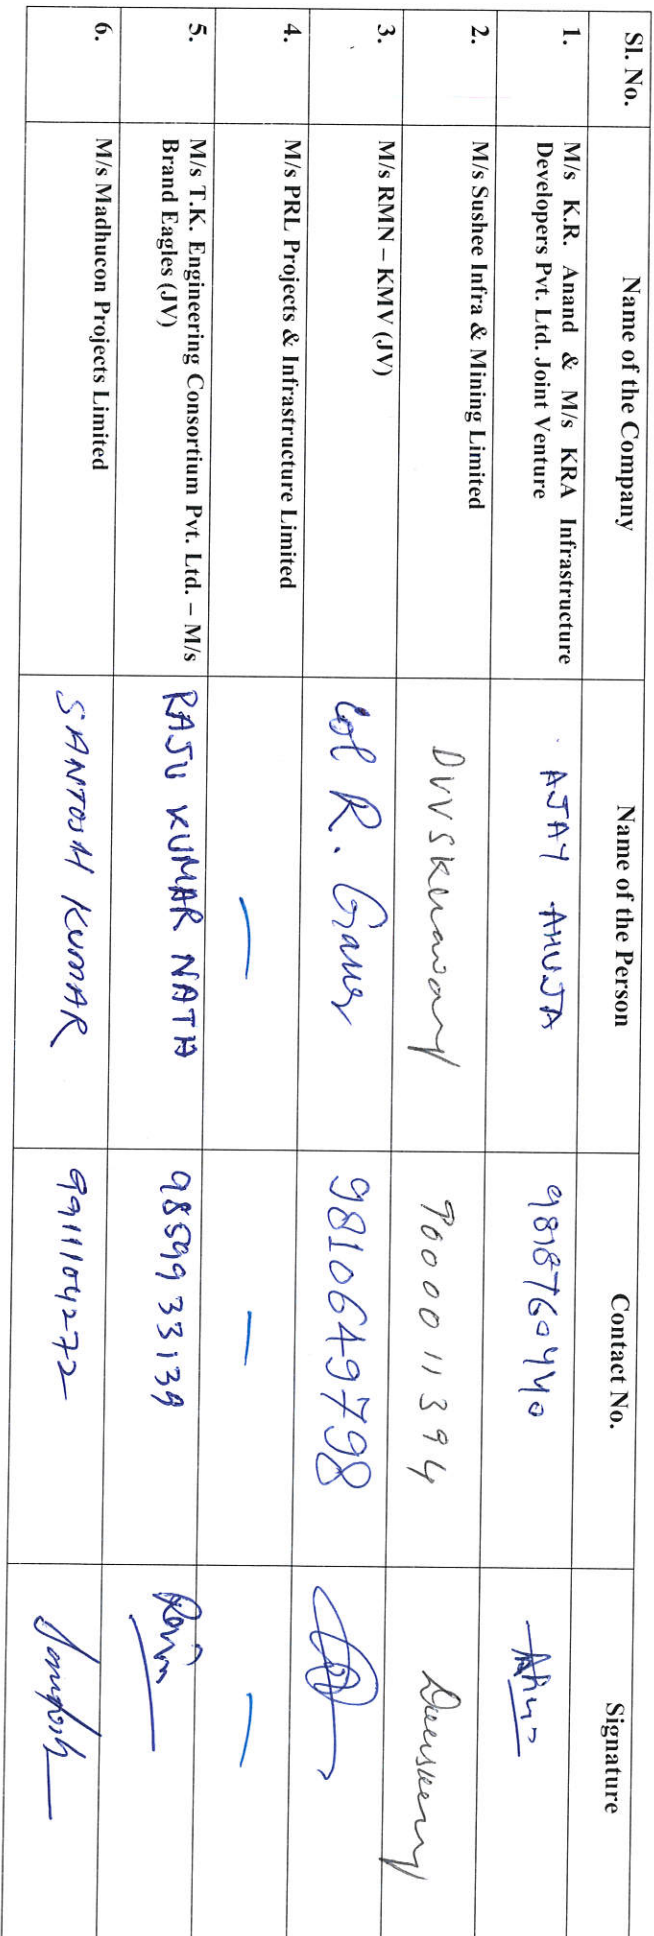 Sl. No. Name of the Company Name of the Person Contact No. Signature
1. M/s K.R. Anand & M/s KRA Infrastructure
Developers Pvt. Ltd. Joint Venture AJAY AHUJA 9818760440
2. M/s Sushee Infra & Mining Limited 9000011394
3. M/s RMN – KMV (JV) Col R. 9810649798
4. M/s PRL Projects & Infrastructure Limited — — —
5. M/s T.K. Engineering Consortium Pvt. Ltd. – M/s
Brand Eagles (JV) RAJU KUMAR NATH 9859933139
6. M/s Madhucon Projects Limited SANTOSH KUMAR 9911104272 Santosh